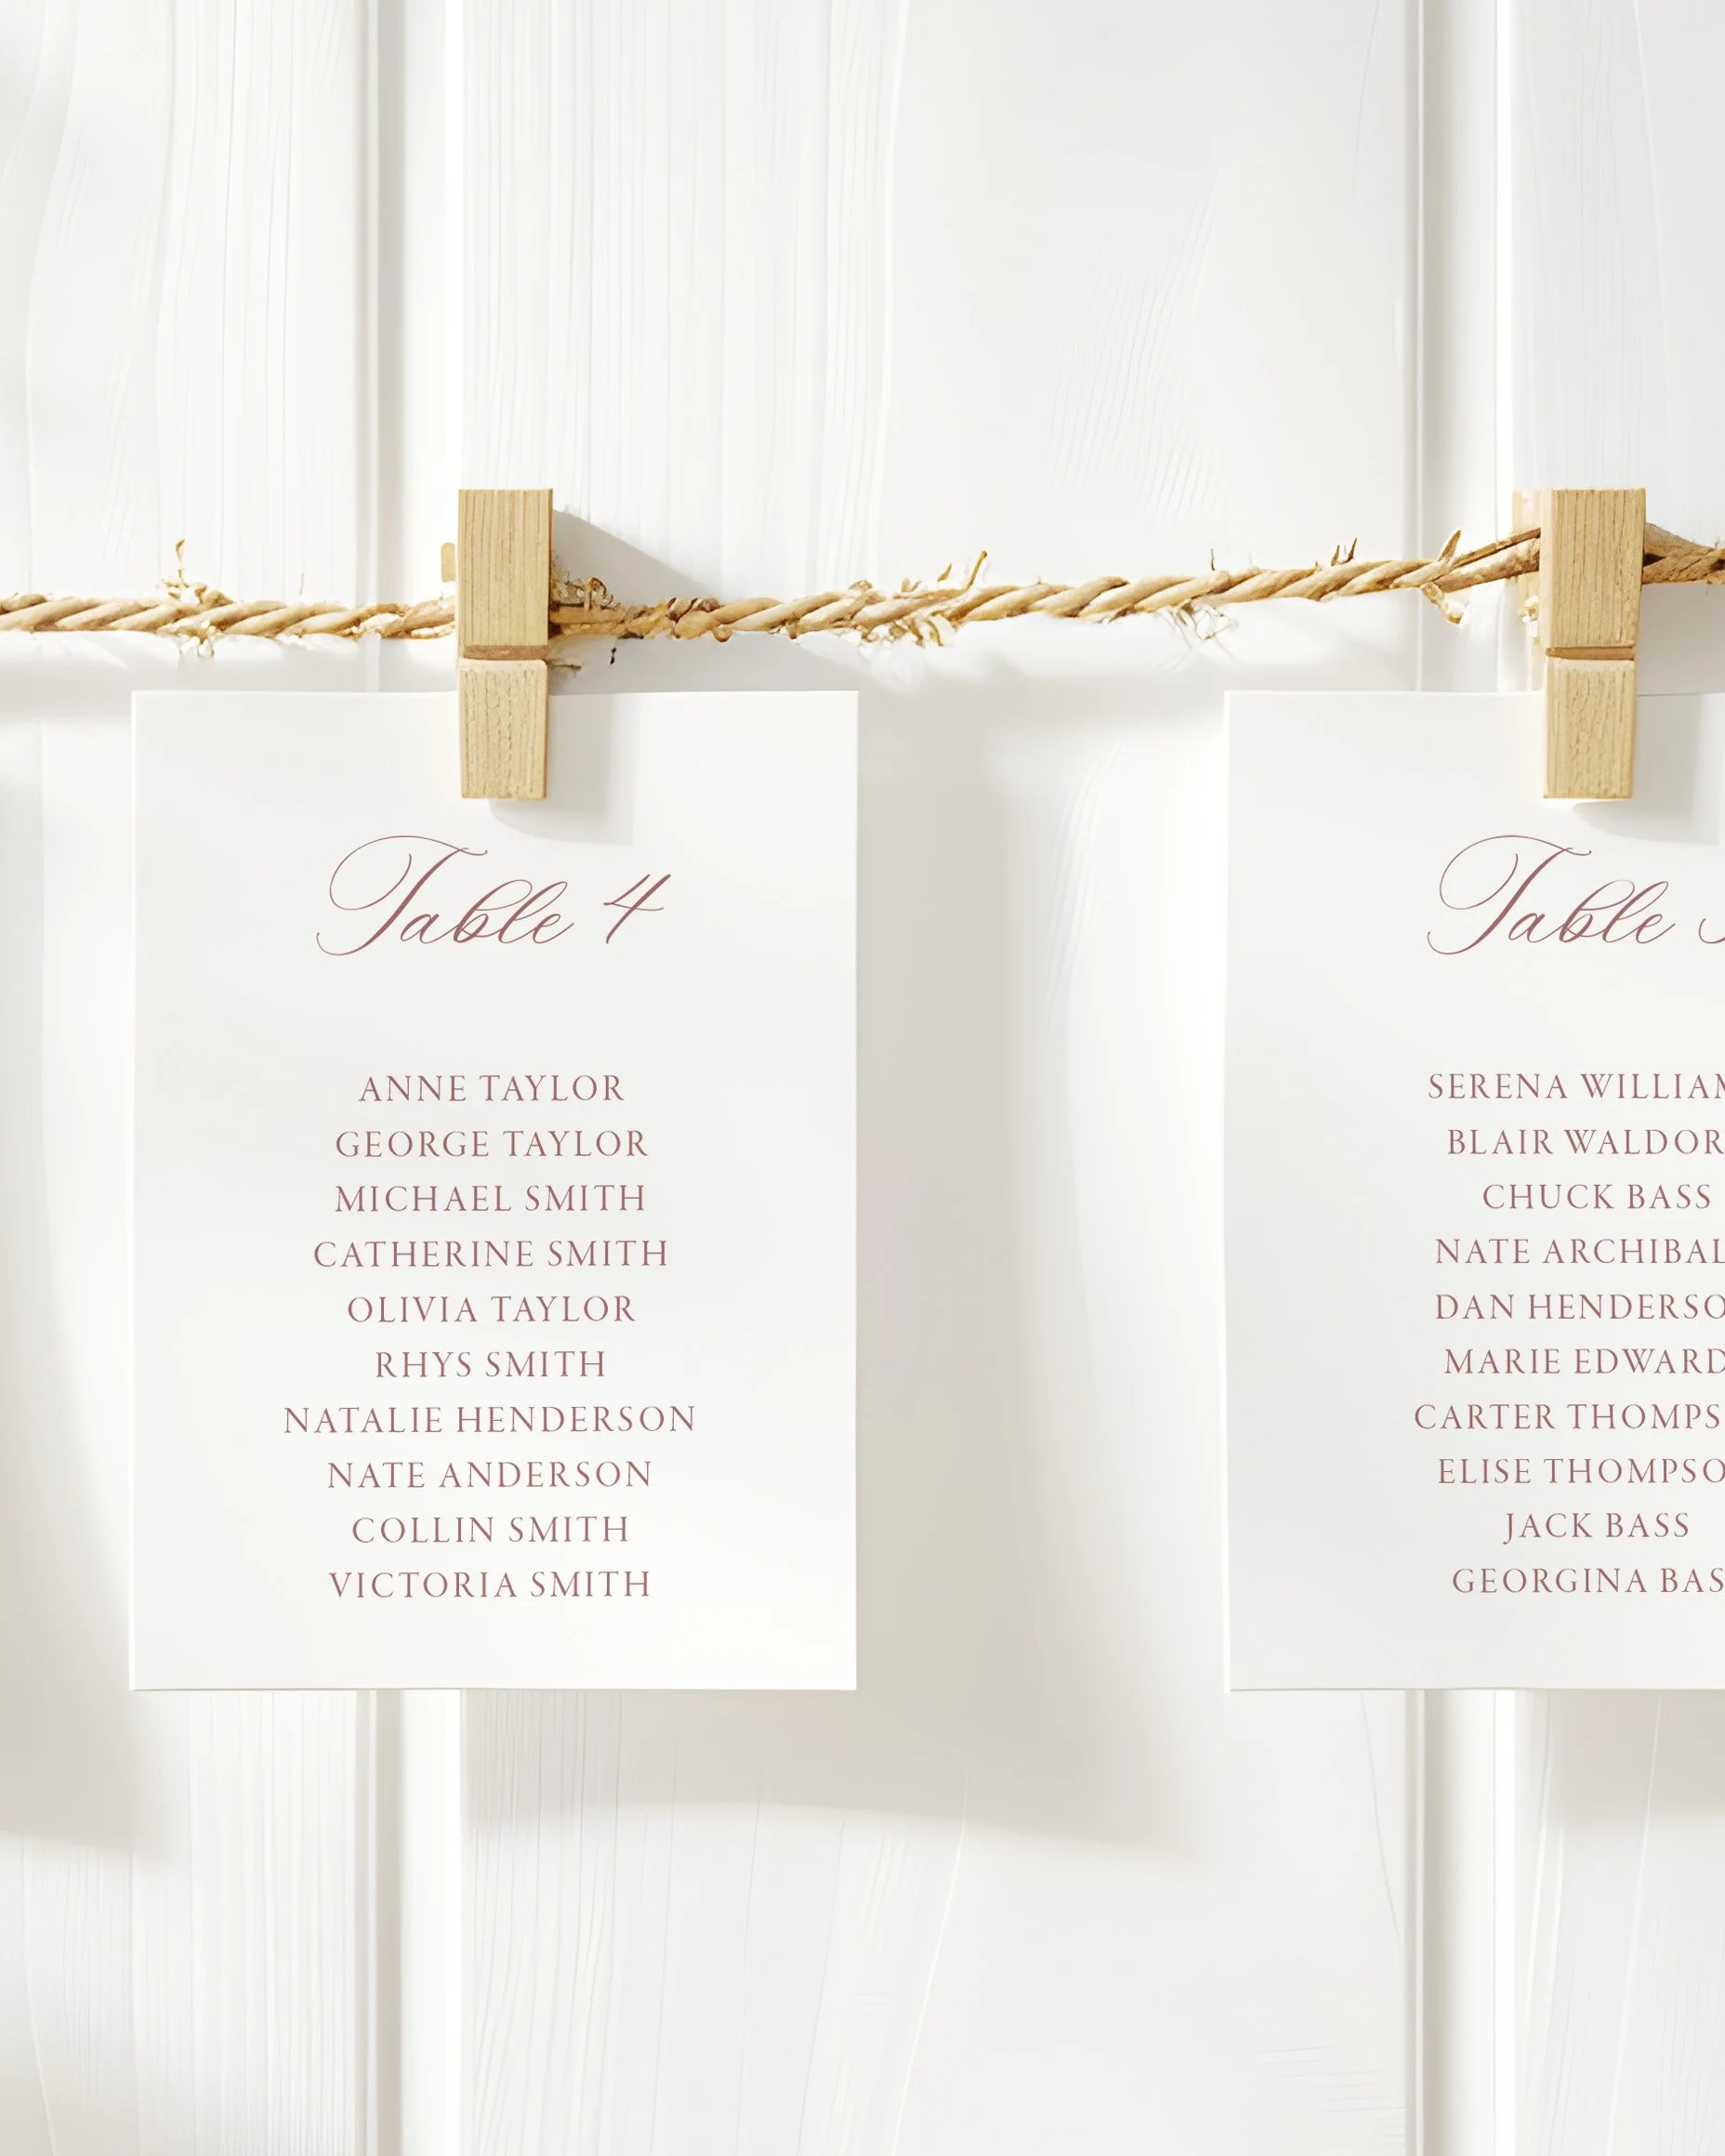 Table 4
ANNE TAYLOR
GEORGE TAYLOR
MICHAEL SMITH
CATHERINE SMITH
OLIVIA TAYLOR
RHYS SMITH
NATALIE HENDERSON
NATE ANDERSON
COLLIN SMITH
VICTORIA SMITH
Table
SERENA WILLIAM
BLAIR WALDOR
CHUCK BASS
NATE ARCHIBAL
DAN HENDERSO
MARIE EDWARD
CARTER THOMPS
ELISE THOMPSO
JACK BASS
GEORGINA BAS